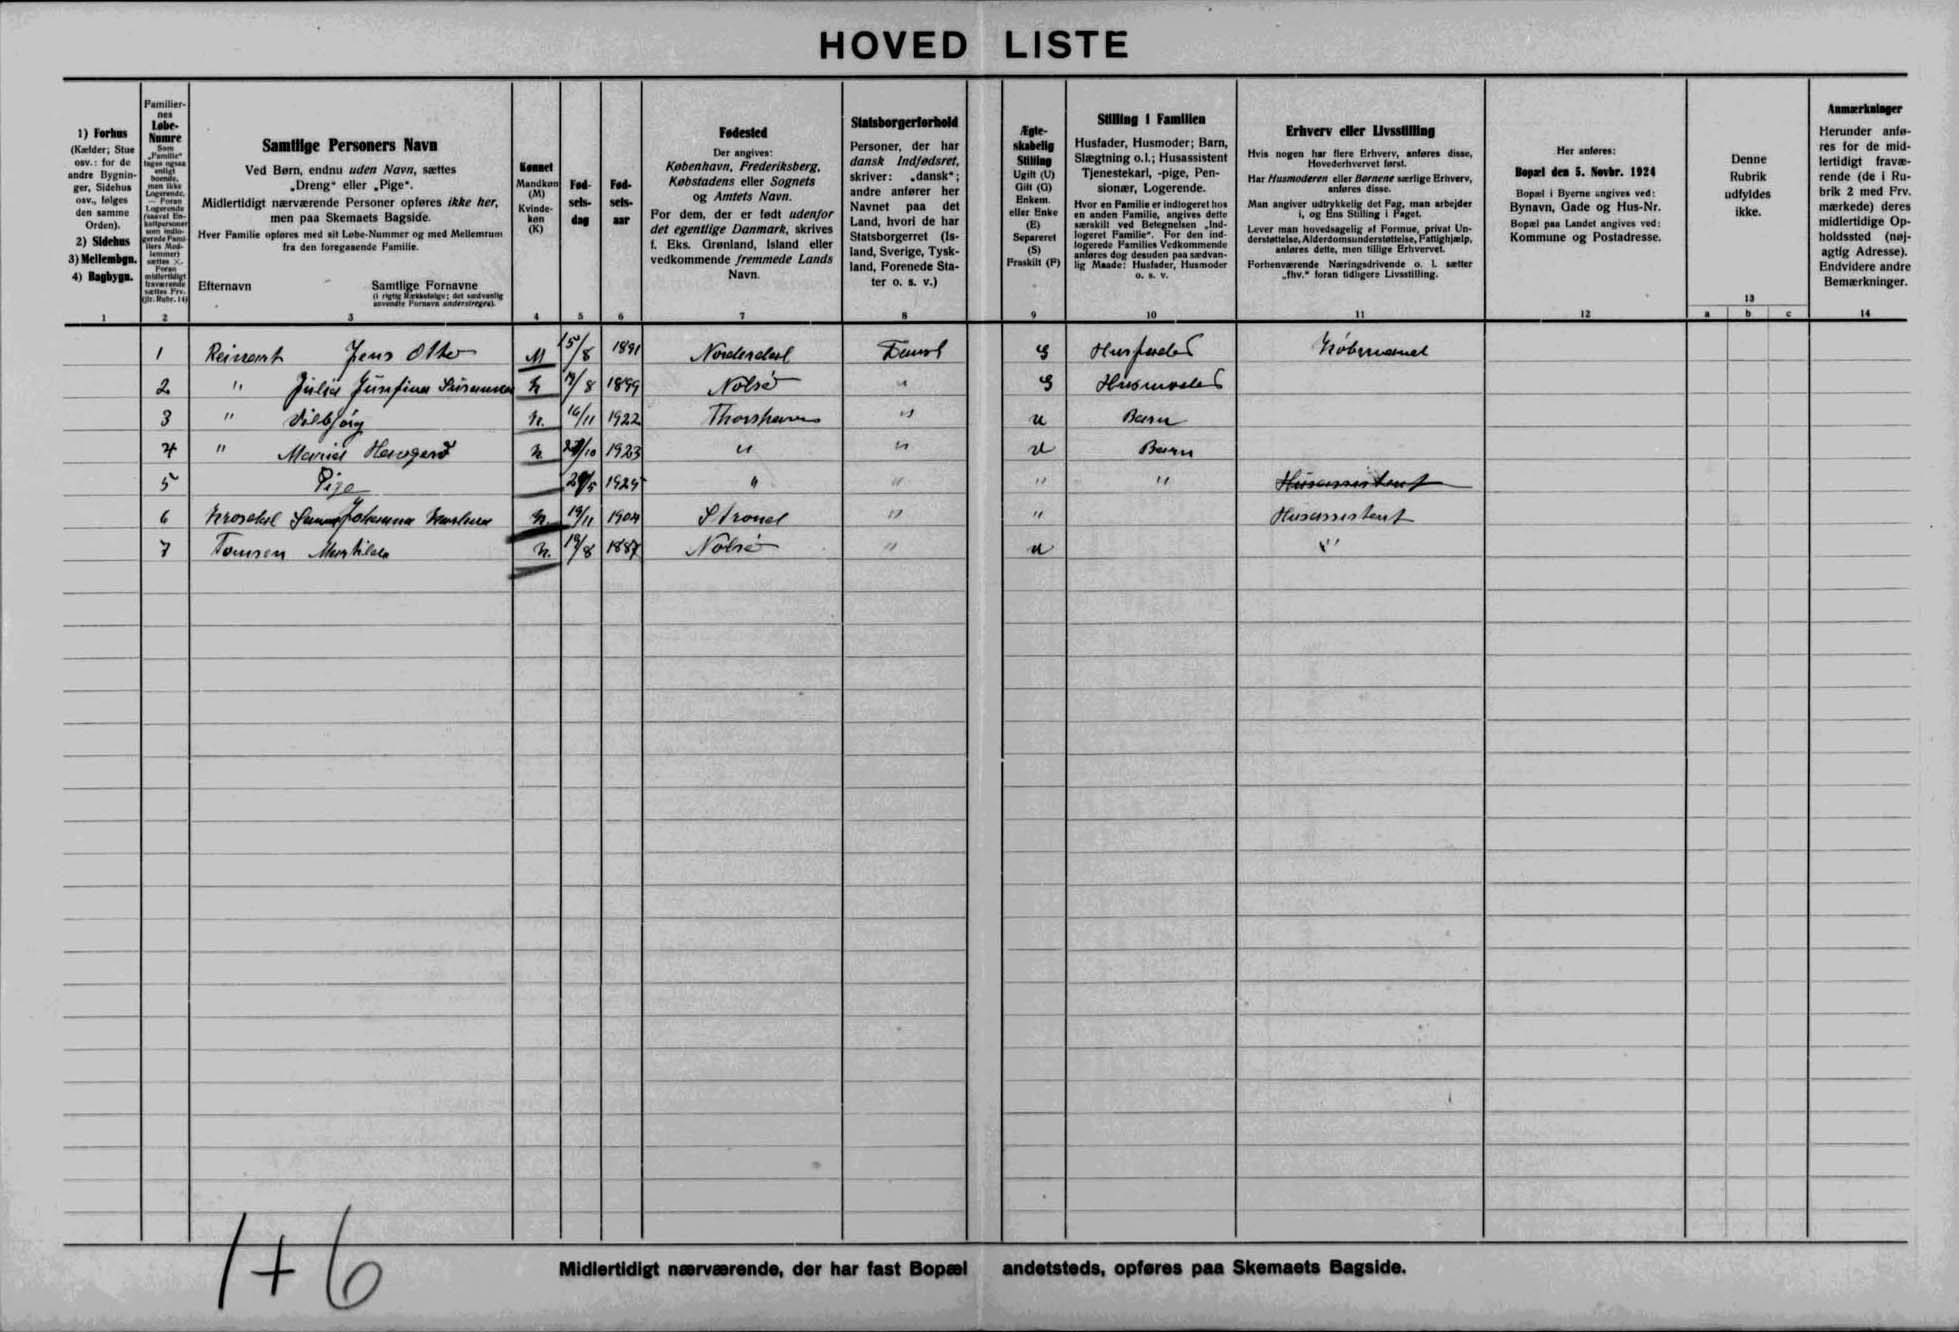 HOVED LISTE
1) Forhus
(Kælder; Stue
osv.: for de
andre Bygnin-
ger, Sidehus
osv., følges
den samme
Orden).
2) Sidehus
3) Mellembgn.
4) Bagbygn.
1
Familier-
nes
Løbe-
Numre
Som
„Familie"
tages ogsaa
enligt
boende,
men ikke
Logerende.
— Foran
Logerende
(saavel En-
keltpersoner
som indlo-
gerede Fami-
liers Med-
lemmer)
sættes ×.
Foran
midlertidigt
fraværende
sættes Frv.
(jfr. Rubr. 14)
2
Samtlige Personers Navn
Ved Børn, endnu uden Navn, sættes
„Dreng" eller „Pige".
Midlertidigt nærværende Personer opføres ikke her,
men paa Skemaets Bagside.
Hver Familie opføres med sit Løbe-Nummer og med Mellemrum
fra den foregaaende Familie.
Efternavn Samtlige Fornavne
(i rigtig Rækkefølge; det sædvanlig
anvendte Fornavn understreges).
3
Kønnet
Mandkøn
(M)
Kvinde-
køn
(K)
4
Fød-
sels-
dag
5
Fød-
sels-
aar
6
Fødested
Der angives:
København, Frederiksberg,
Købstadens eller Sognets
og Amtets Navn.
For dem, der er født udenfor
det egentlige Danmark, skrives
f. Eks. Grønland, Island eller
vedkommende fremmede Lands
Navn.
7
Statsborgerforhold
Personer, der har
dansk Indfødsret,
skriver: „dansk";
andre anfører her
Navnet paa det
Land, hvori de har
Statsborgerret (Is-
land, Sverige, Tysk-
land, Forenede Sta-
ter o. s. v.)
8
Ægte-
skabelig
Stilling
Ugift (U)
Gift (G)
Enkem.
eller Enke
(E)
Separeret
(S)
Fraskilt (F)
9
Stilling i Familien
Husfader, Husmoder; Barn,
Slægtning o.l.; Husassistent
Tjenestekarl, -pige, Pen-
sionær, Logerende.
Hvor en Familie er indlogeret hos
en anden Familie, angives dette
særskilt ved Betegnelsen „Ind-
logeret Familie". For den ind-
logerede Families Vedkommende
anføres dog desuden paa sædvan-
lig Maade: Husfader, Husmoder
o. s. v.
10
Erhverv eller Livsstilling
Hvis nogen har flere Erhverv, anføres disse,
Hovederhvervet først.
Har Husmoderen eller Børnene særlige Erhverv,
anføres disse.
Man angiver udtrykkelig det Fag, man arbejder
i, og Ens Stilling i Faget.
Lever man hovedsagelig af Formue, privat Un-
derstøttelse, Alderdomsunderstøttelse, Fattighjælp,
anføres dette, men tillige Erhvervet.
Forhenværende Næringsdrivende o. l. sætter
„fhv." foran tidligere Livsstilling.
11
Her anføres:
Bopæl den 5. Novbr. 1924
Bopæl i Byerne angives ved:
Bynavn, Gade og Hus-Nr.
Bopæl paa Landet angives ved:
Kommune og Postadresse.
12
Denne
Rubrik
udfyldes
ikke.
13
a b c
Anmærkninger
Herunder anfø-
res for de mid-
lertidigt fravæ-
rende (de i Ru-
brik 2 med Frv.
mærkede) deres
midlertidige Op-
holdssted (nøj-
agtig Adresse).
Endvidere andre
Bemærkninger.
14
1 Reinert Jens Otto M 15/8 1891 Norderdal Dansk G Husfader Købmand
2 " Julia Jusefina Susanna K 1899 Nolsö " G Husmoder
3 " Vilbjörg K. 16/11 1922 Thorshavn " U Barn
4 " Maria K 1923 " " U Barn
5 Pige 1925 " " " " Husassistent
6 Johanna K 19/11 1904 Strond " " Husassistent
7 Tomsen K. 19/8 1887 Nolsö " U "
1+6
Midlertidigt nærværende, der har fast Bopæl andetsteds, opføres paa Skemaets Bagside.